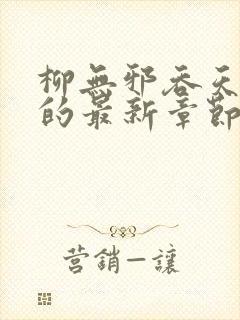 柳無邪吞天
的最新章節
營銷—讓